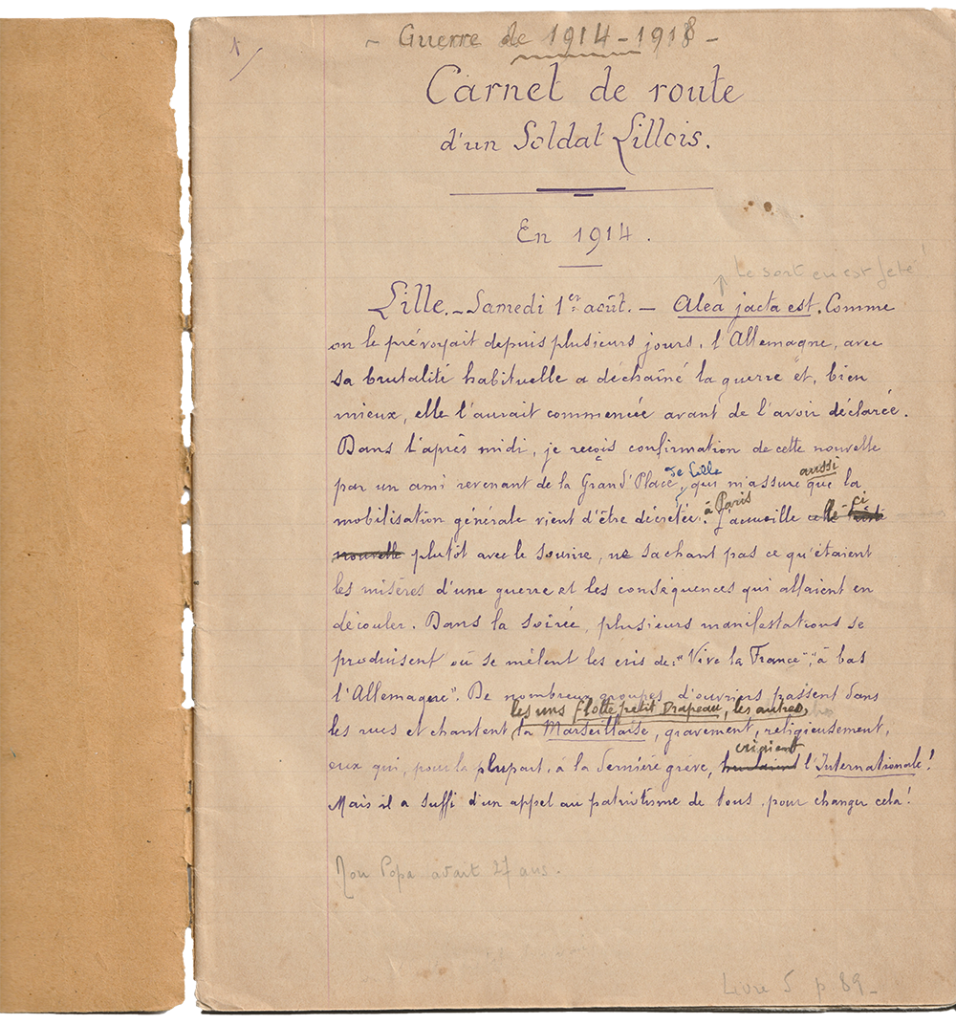 - Guerre de 1914-1918 -
Carnet de route
d'un Soldat Lillois.
En 1914.
Le sort en est jeté!
Lille. - Samedi 1er août. - Alea jacta est. Comme
on le prévoyait depuis plusieurs jours, l'Allemagne, avec
sa brutalité habituelle a déchaîné la guerre et, bien
mieux, elle l'aurait commencée avant de l'avoir déclarée.
Dans l'après midi, je reçois confirmation de cette nouvelle
de Lille aussi
par un ami revenant de la Grand'Place, qui m'assure que la
à Paris ci
mobilisation générale vient d'être décrétée. J'accueille celle
nouvelle plutôt avec le sourire, ne sachant pas ce qu'étaient
les misères d'une guerre et les conséquences qui allaient en
découler. Dans la soirée, plusieurs manifestations se
produisent où se mêlent les cris de: "Vive la France", "à bas
l'Allemagne". De nombreux groupes d'ouvriers passent dans
les uns flotte petit drapeau, les autres,
les rues et chantent la Marseillaise, gravement, religieusement,
criaient
eux qui, pour la plupart, à la dernière grève, hurlaient l'Internationale!
Mais il a suffi d'un appel au patriotisme de tous, pour changer cela!
Mon Papa avait 27 ans.
Livre 5 p 89-